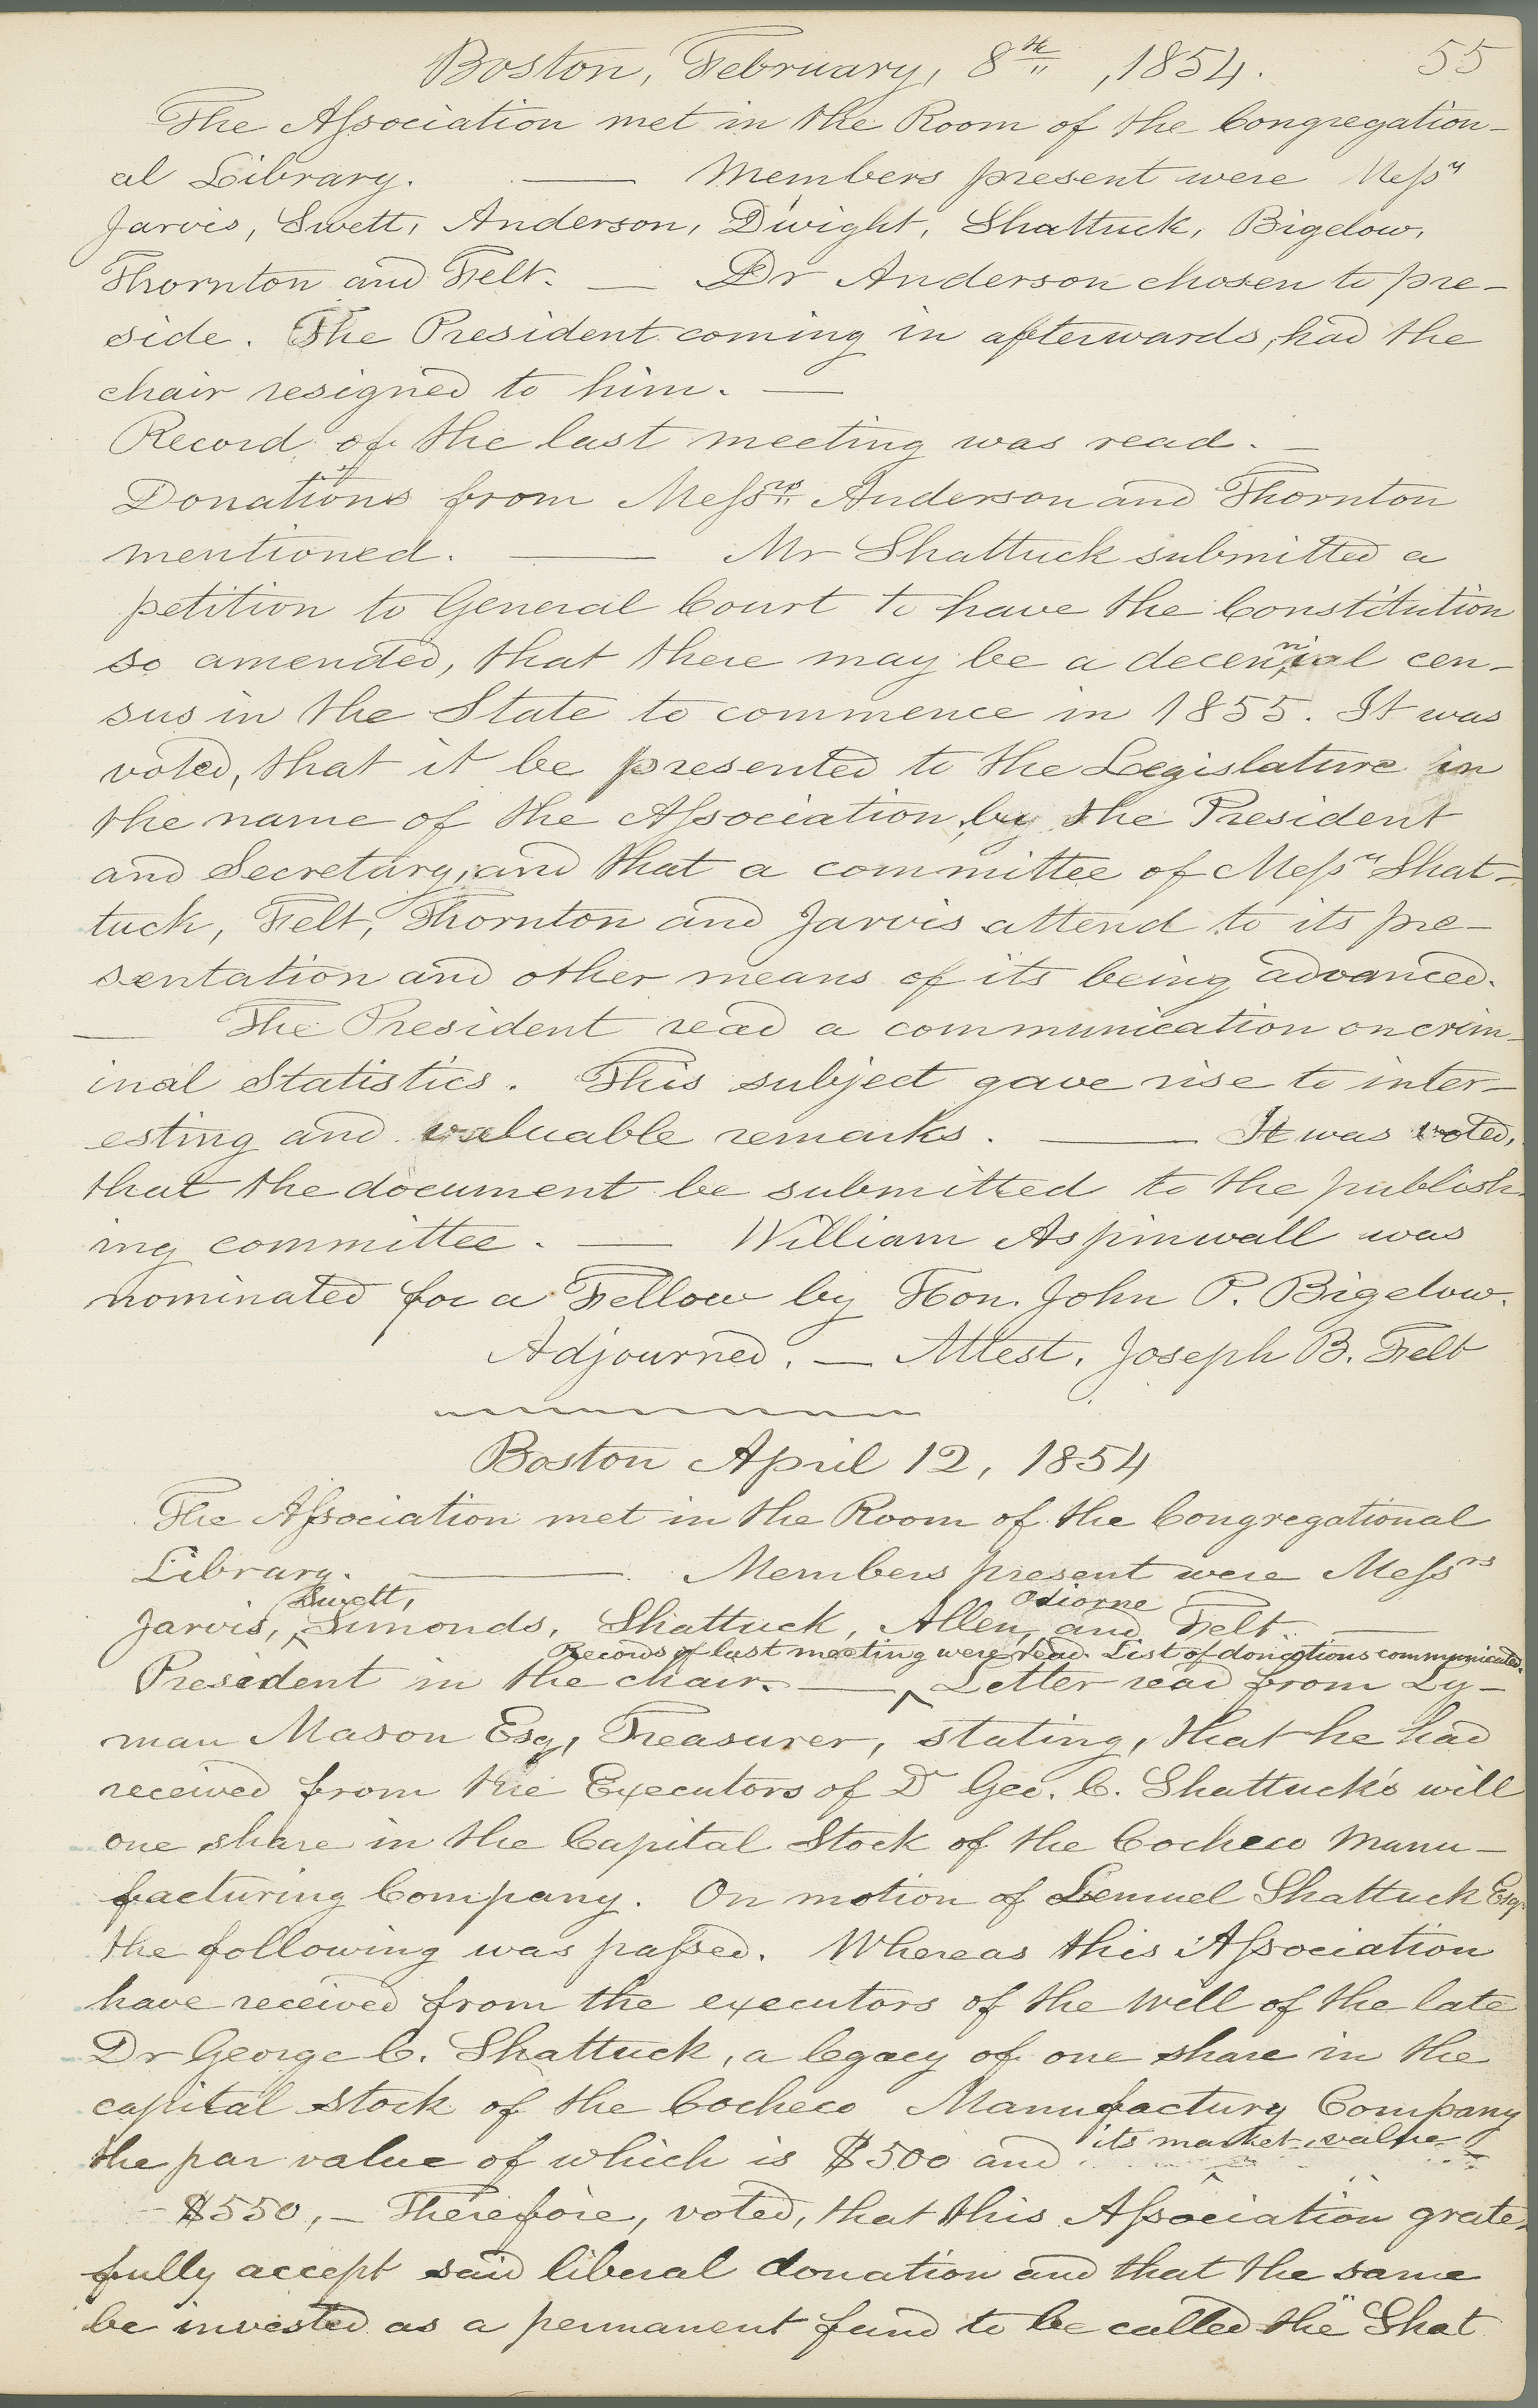 Boston, February, 8th, 1854. 55
The Association met in the Room of the Congregation-
al Library. — Members present were Messrs
Jarvis, Swett, Anderson, Dwight, Shattuck, Bigelow,
Thornton and Felt. — Dr Anderson chosen to pre-
side. The President coming in afterwards, had the
chair resigned to him. —
Record of the last meeting was read. —
Donations from Messrs Anderson and Thornton
mentioned. — Mr Shattuck submitted a
petition to General Court to have the Constitution
so amended, that there may be a decennial cen-
sus in the State to commence in 1855. It was
voted, that it be presented to the Legislature in
the name of the Association, by the President
and Secretary, and that a committee of Messrs Shat-
tuck, Felt, Thornton and Jarvis attend to its pre-
sentation and other means of its being advanced.
— The President read a communication on crim-
inal Statistics. This subject gave rise to inter-
esting and valuable remarks. — It was voted,
that the document be submitted to the publish-
ing committee. — William Aspinwall was
nominated for a Fellow by Hon. John P. Bigelow.
Adjourned. — Attest. Joseph B. Felt
Boston April 12, 1854
The Association met in the Room of the Congregational
Library. — Members present were Messrs
Jarvis, Swett, Simonds, Shattuck, Allen, Odiorne and Felt. —
President in the chair. — Records of last meeting were read. List of donations communicated. Letter read from Ly-
man Mason Esq, Treasurer, stating, that he had
received from the Executors of Dr Geo. C. Shattuck's will
one share in the Capital Stock of the Cocheco Manu-
facturing Company. On motion of Lemuel Shattuck Esq
the following was passed. Whereas this Association
have received from the executors of the will of the late
Dr George C. Shattuck, a legacy of one share in the
capital stock of the Cocheco Manufactury Company
the par value of which is $500 and its market value
$550, — Therefore, voted, that this Association grate-
fully accept said liberal donation and that the same
be invested as a permanent fund to be called the "Shat